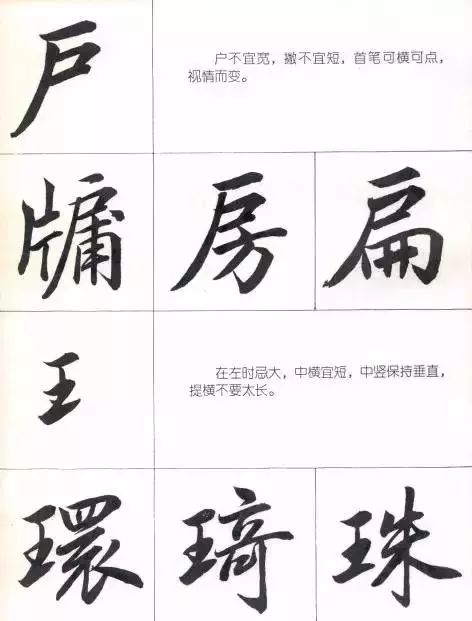 户
户不宜宽，撇不宜短，首笔可横可点，
视情而变。
牗 房 扁
王
在左时忌大，中横宜短，中竖保持垂直，
提横不要太长。
環 琦 珠